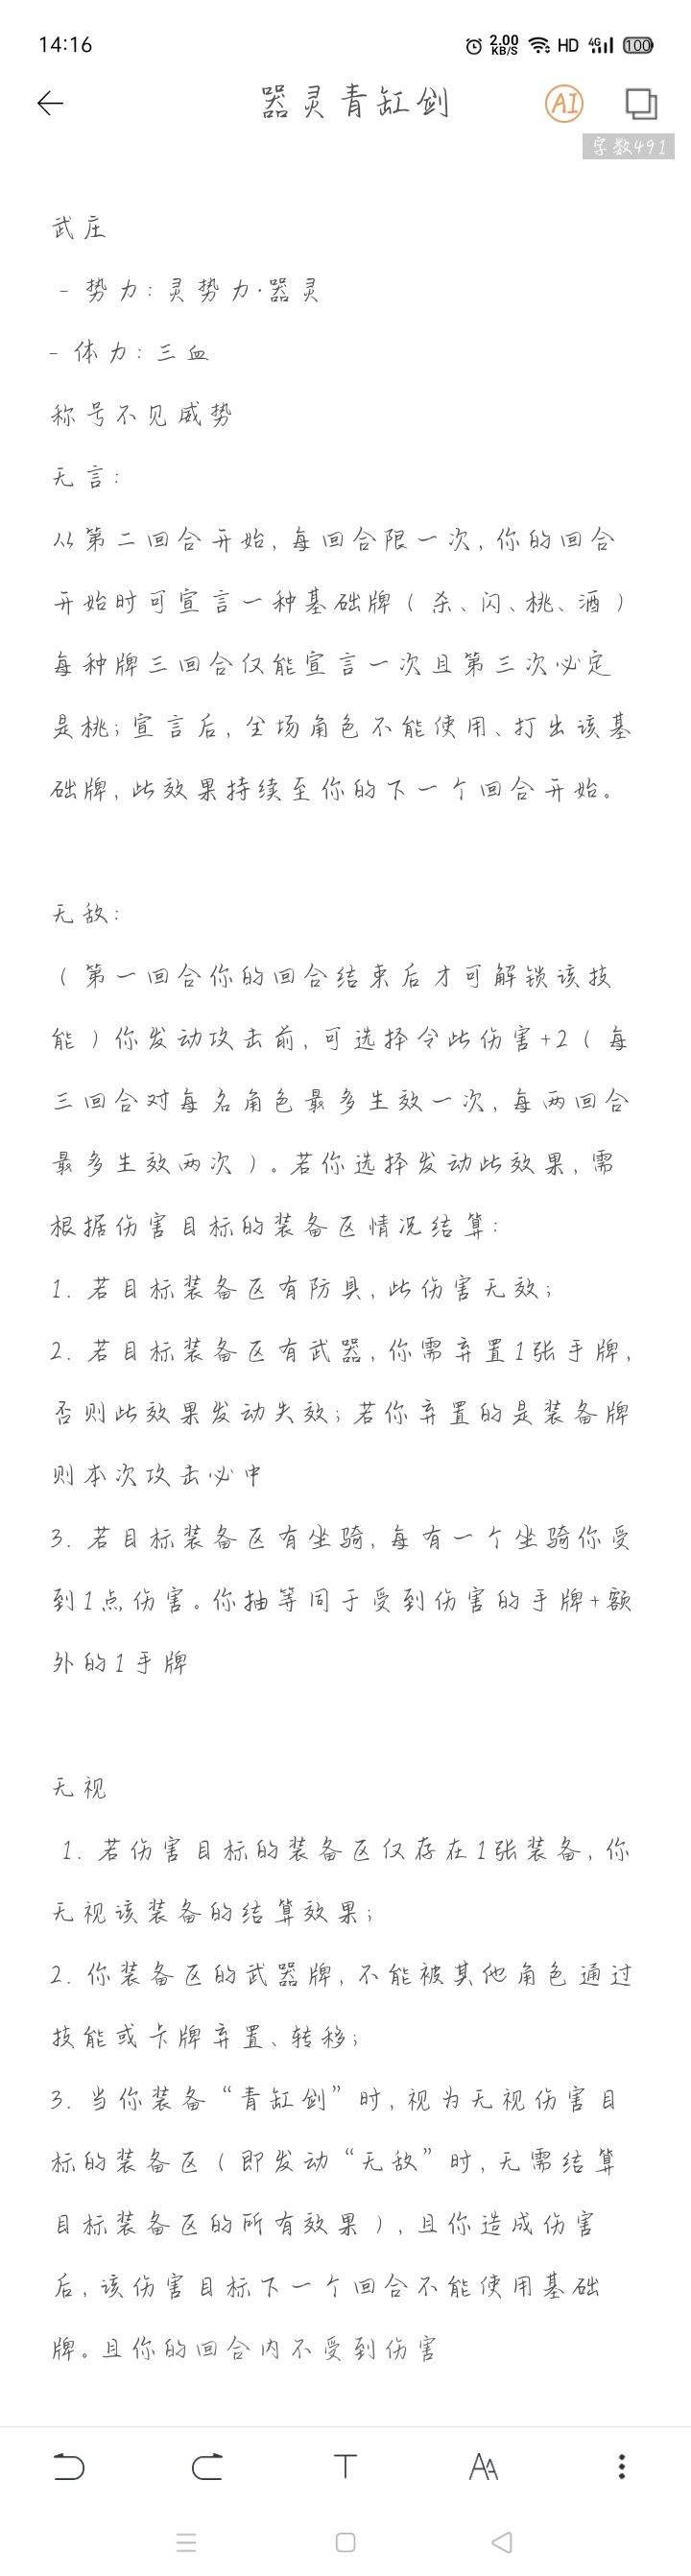 14:16
2.00
KB/S
HD
4G
100
器灵青缸剑
AI
字数491
武庄
- 势力：灵势力·器灵
- 体力：三血
称号不见威势
无言：
从第二回合开始，每回合限一次，你的回合
开始时可宣言一种基础牌（杀、闪、桃、酒）
每种牌三回合仅能宣言一次且第三次必定
是桃；宣言后，全场角色不能使用、打出该基
础牌，此效果持续至你的下一个回合开始。
无敌：
（第一回合你的回合结束后才可解锁该技
能）你发动攻击前，可选择令此伤害+2（每
三回合对每名角色最多生效一次，每两回合
最多生效两次）。若你选择发动此效果，需
根据伤害目标的装备区情况结算：
1. 若目标装备区有防具，此伤害无效；
2. 若目标装备区有武器，你需弃置1张手牌，
否则此效果发动失效；若你弃置的是装备牌
则本次攻击必中
3. 若目标装备区有坐骑，每有一个坐骑你受
到1点伤害。你抽等同于受到伤害的手牌+额
外的1手牌
无视
1. 若伤害目标的装备区仅存在1张装备，你
无视该装备的结算效果；
2. 你装备区的武器牌，不能被其他角色通过
技能或卡牌弃置、转移；
3. 当你装备“青缸剑”时，视为无视伤害目
标的装备区（即发动“无敌”时，无需结算
目标装备区的所有效果），且你造成伤害
后，该伤害目标下一个回合不能使用基础
牌。且你的回合内不受到伤害